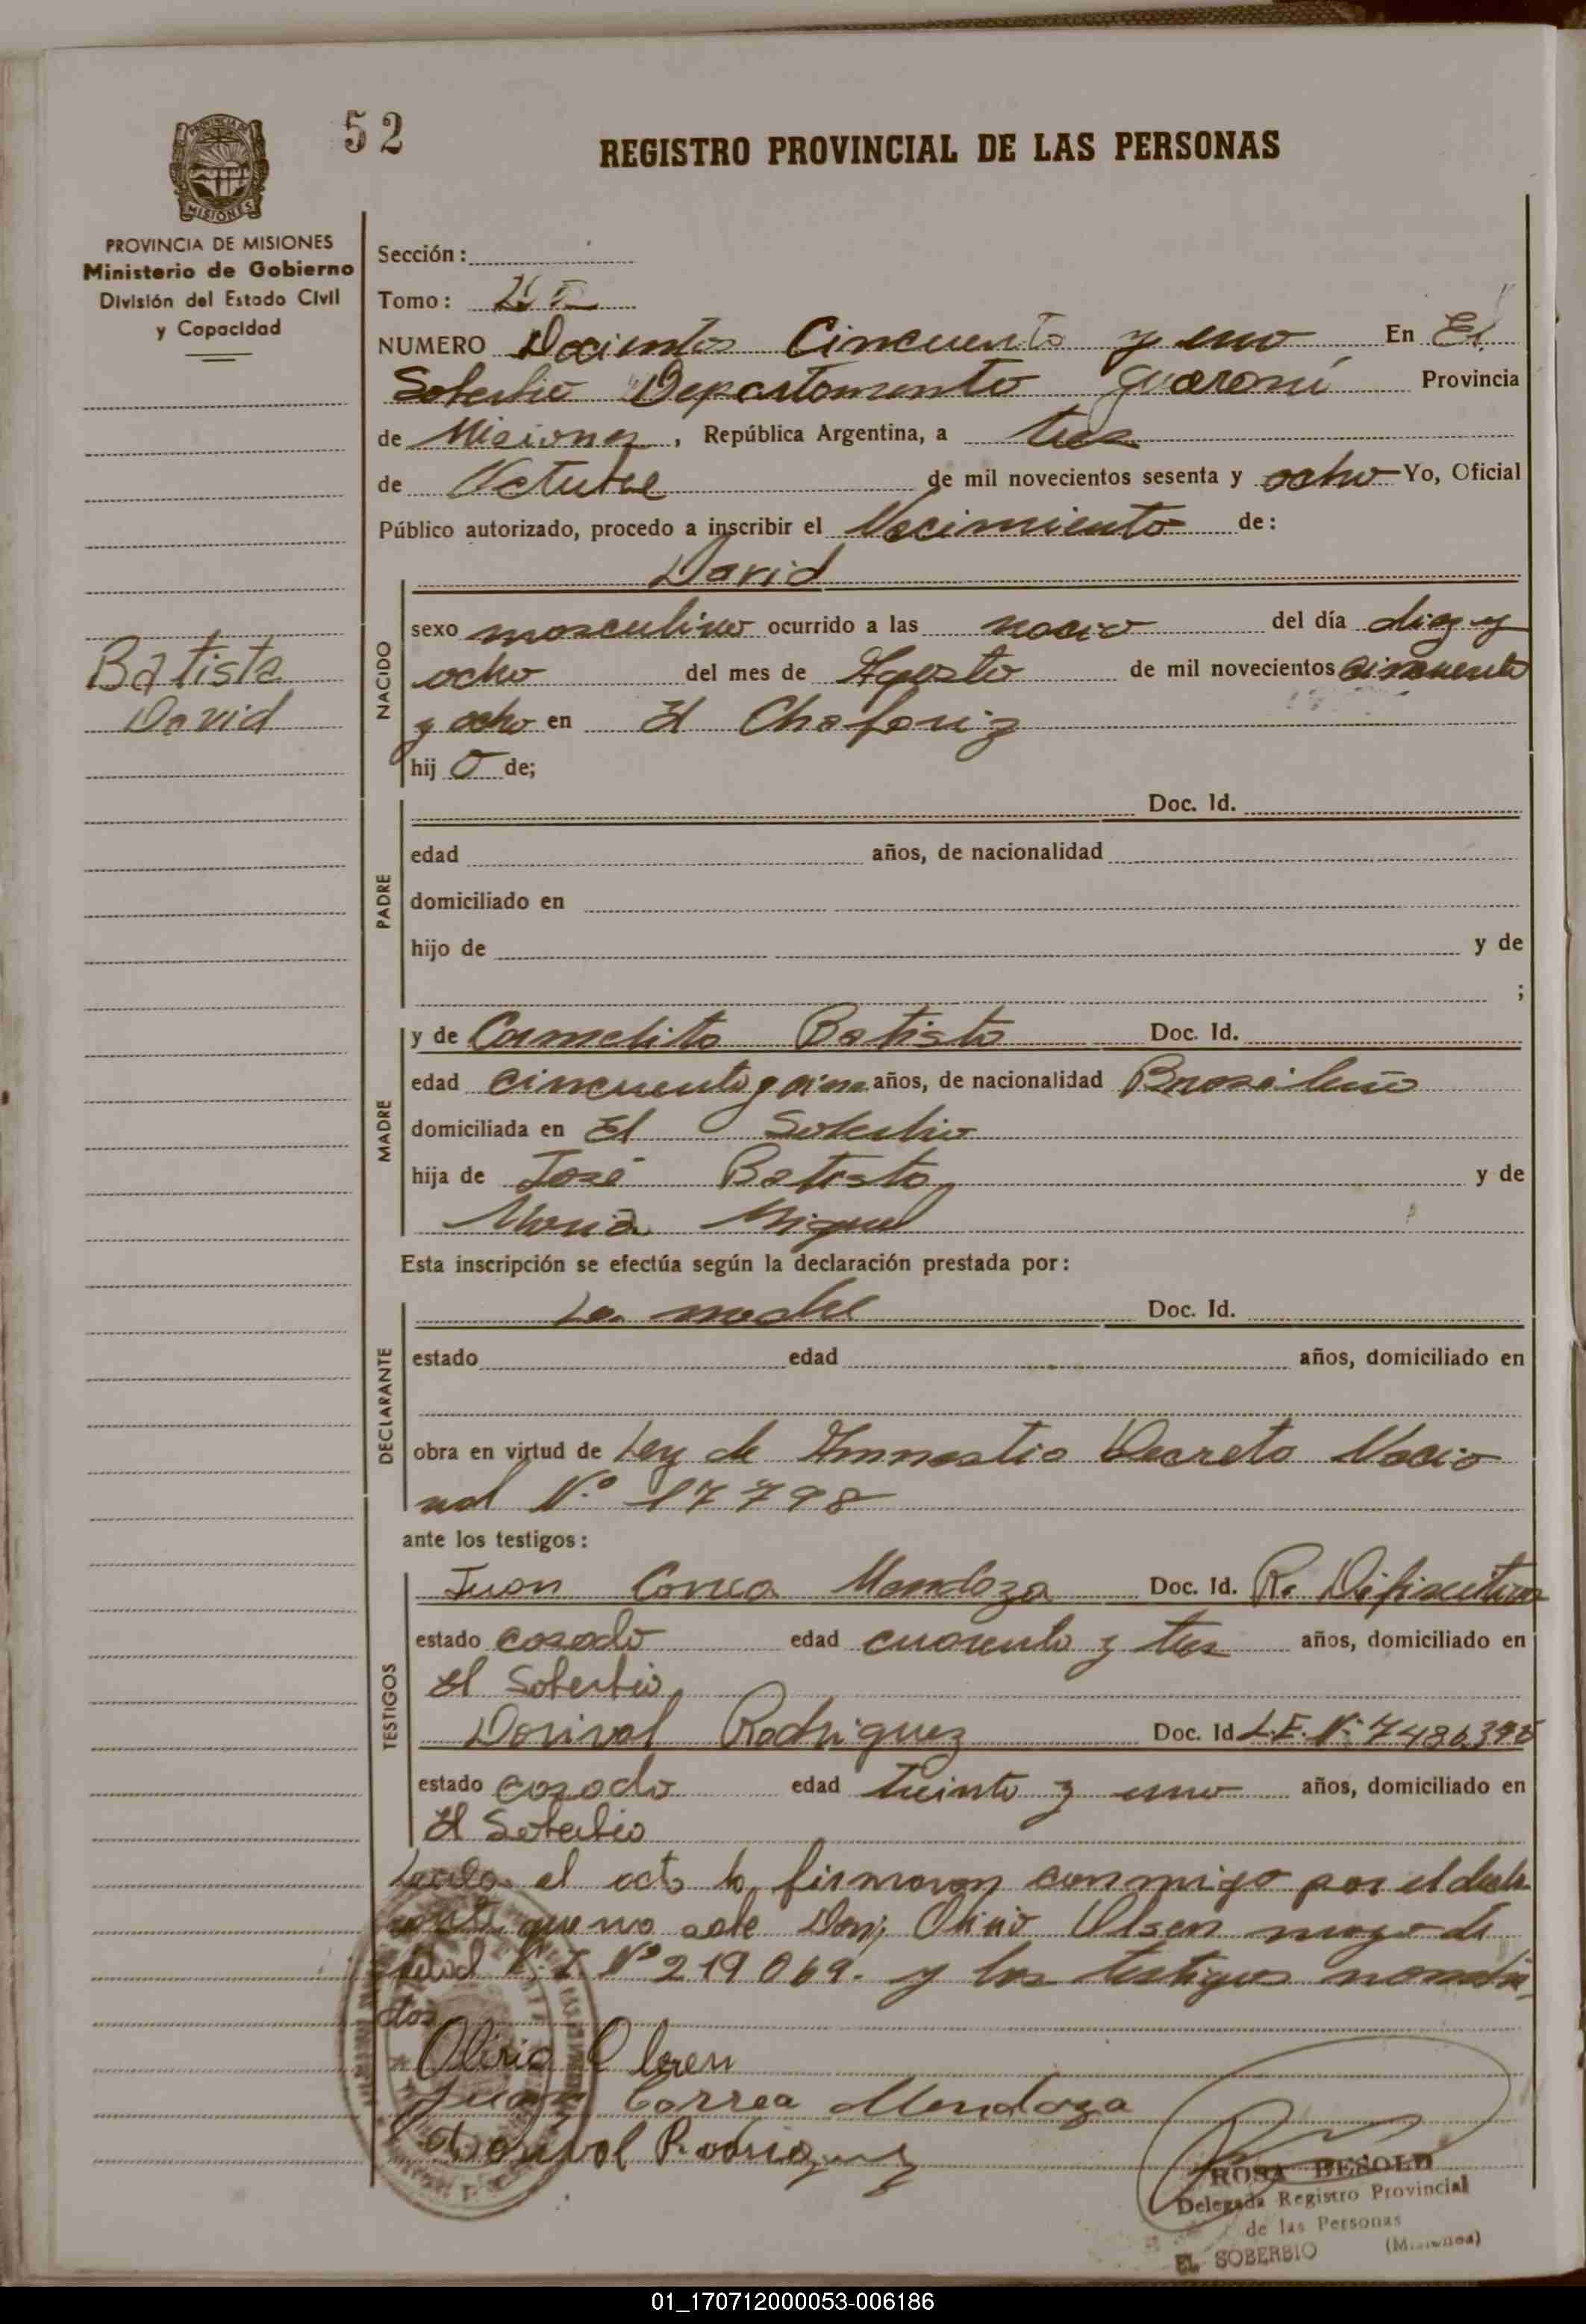 52
REGISTRO PROVINCIAL DE LAS PERSONAS
PROVINCIA DE MISIONES
Ministerio de Gobierno
División del Estado Civil
y Capacidad
Batista
David
Sección:
Tomo:
NUMERO Docientos Cincuenta y uno En El
Soberbio Departamento Guaraní Provincia
de Misiones, República Argentina, a tres
de Octubre de mil novecientos sesenta y ocho Yo, Oficial
Público autorizado, procedo a inscribir el Nacimiento de:
David
NACIDO
sexo masculino ocurrido a las nacio del día diez y
ocho del mes de Agosto de mil novecientos cincuenta
y ocho en El Chafariz
hij o de;
PADRE
Doc. Id.
edad años, de nacionalidad
domiciliado en
hijo de y de
;
MADRE
y de Carmelita Batista Doc. Id.
edad cincuenta y años, de nacionalidad Brasileña
domiciliada en El Soberbio
hija de José Batista y de
Maria Miguel
Esta inscripción se efectúa según la declaración prestada por:
DECLARANTE
La madre Doc. Id.
estado edad años, domiciliado en
obra en virtud de Ley de Amnestia Decreto Nacio
nal N.º 17798
ante los testigos:
TESTIGOS
Juan Correa Mendoza Doc. Id. R. Difinitiva
estado casado edad cuarenta y tres años, domiciliado en
El Soberbio
Dorival Rodriguez Doc. Id L.E. Nº
estado casado edad treinta y uno años, domiciliado en
El Soberbio
Leida el acta la firmaron conmigo por el decla
que no sabe Don, Olirio Olsen mayor de
edad C.I. Nº 219069. y los testigos nombra
dos
Olirio Olsen
Juan Correa Mendoza
Dorival Rodriguez
ROSA BESOLD
Delegada Registro Provincial
de las Personas
EL SOBERBIO (Misiones)
01_170712000053-006186